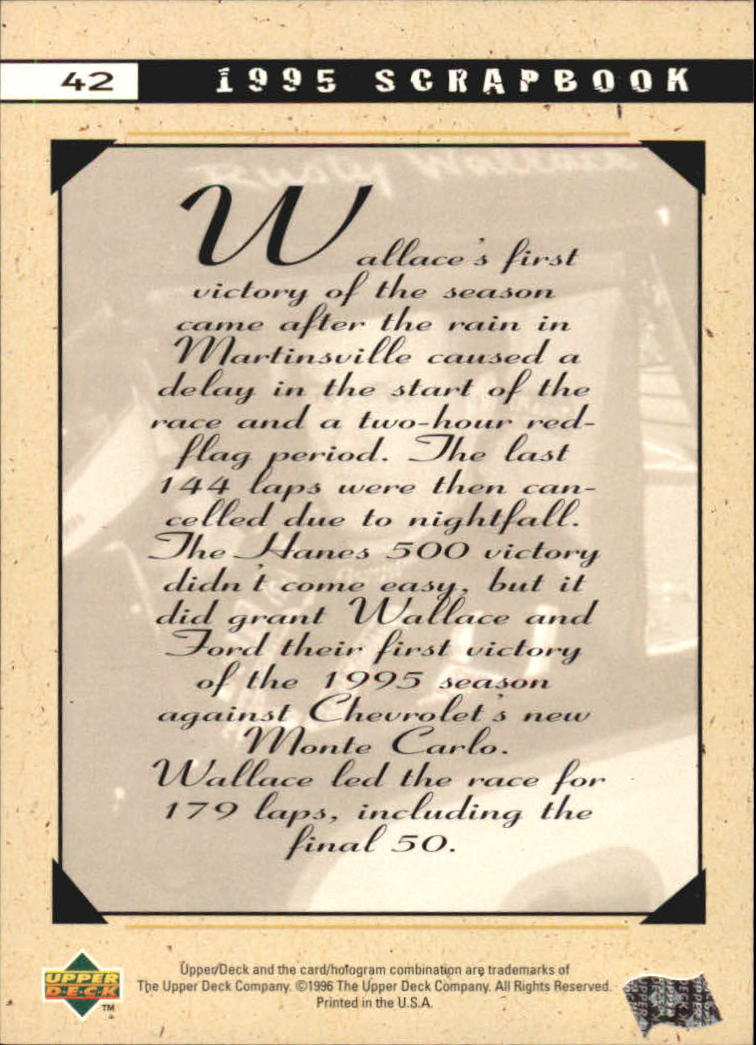 42
1995 SCRAPBOOK
Rusty Wallace
Wallace's first
victory of the season
came after the rain in
Martinsville caused a
delay in the start of the
race and a two-hour red-
flag period. The last
144 laps were then can-
celled due to nightfall.
The Hanes 500 victory
didn't come easy, but it
did grant Wallace and
Ford their first victory
of the 1995 season
against Chevrolet's new
Monte Carlo.
Wallace led the race for
179 laps, including the
final 50.
UPPER
DECK
TM
Upper Deck and the card/hologram combination are trademarks of
The Upper Deck Company. ©1996 The Upper Deck Company. All Rights Reserved.
Printed in the U.S.A.